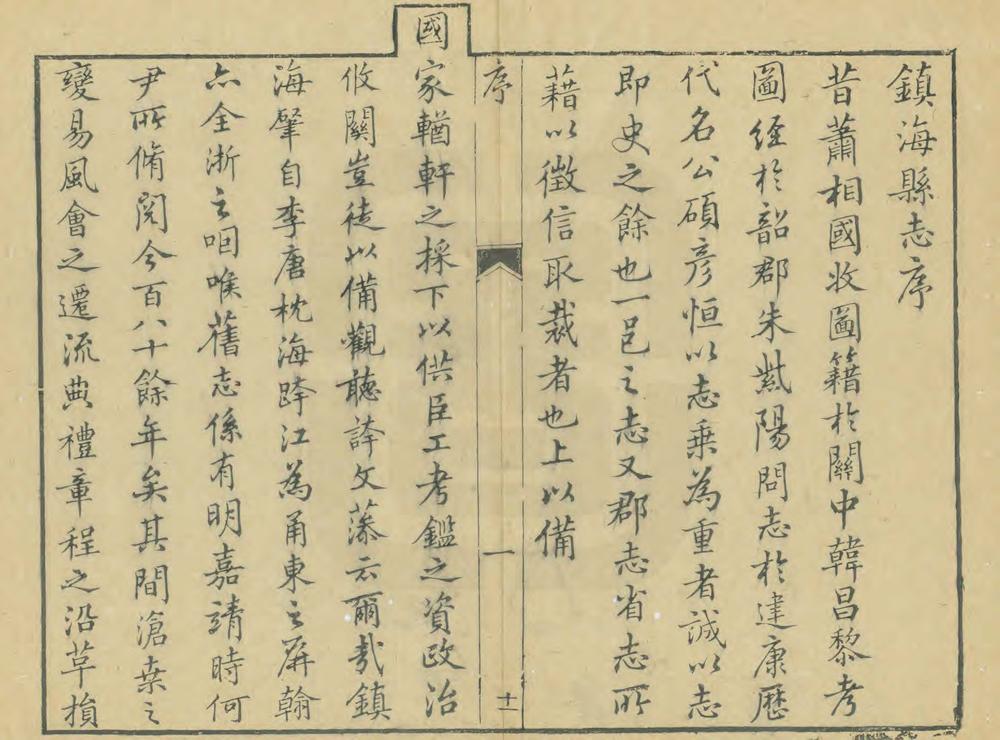 鎮海縣志序
昔蕭相國收圖籍於關中韓昌黎考
圖經於韶郡朱紫陽問志於建康歷
代名公碩彥恒以志乘為重者誠以志
即史之餘也一邑之志又郡志省志所
藉以徵信取裁者也上以備
序
一
十一
國家輶軒之採下以供臣工考鑑之資政治
攸關豈徒以備觀聽誇文藻云爾哉鎮
海肇自李唐枕海跨江為甬東之屏翰
亦全浙之咽喉舊志係有明嘉靖時何
尹所脩閱今百八十餘年矣其間滄桑之
變易風會之遷流典禮章程之沿革損